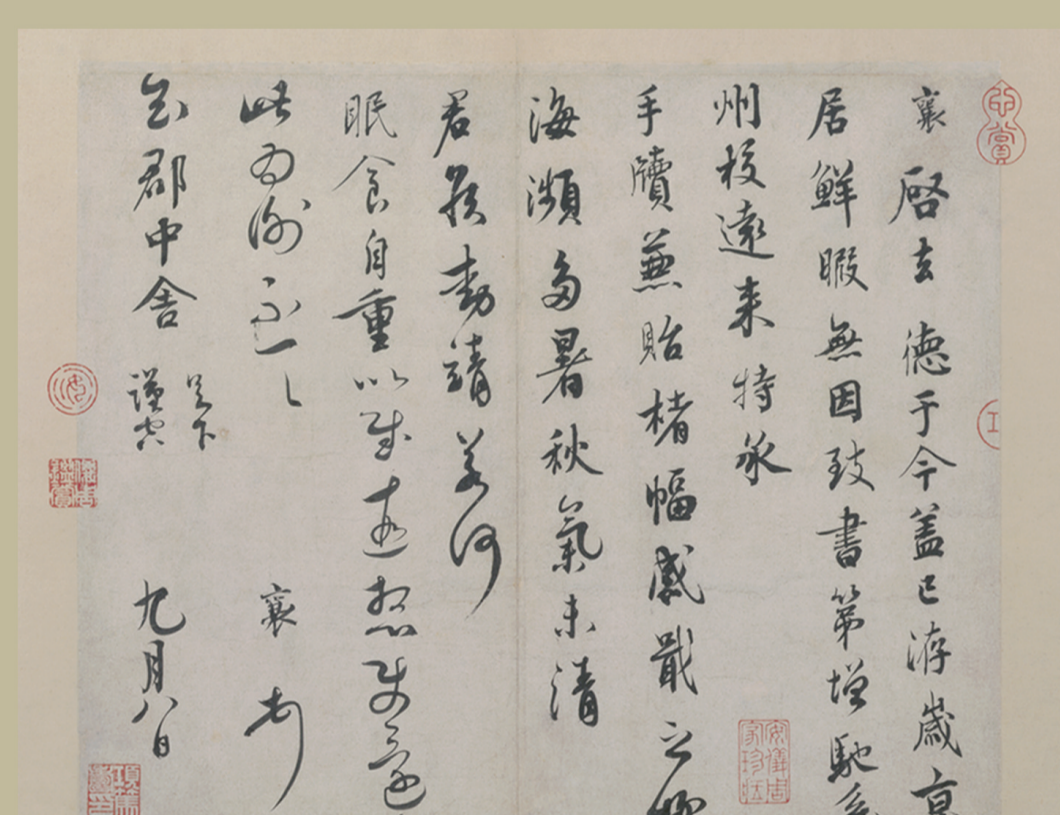 襄啓去德于今蓋已洊歲京
居鮮暇無因致書第增馳系
州校遠來特承
手牘兼貺楮幅感戢之
海瀕多暑秋氣未清
君侯動靖若何
眠食自重以慰遠想
此為謝不一一襄
郡中舍足下謹空
九月八日